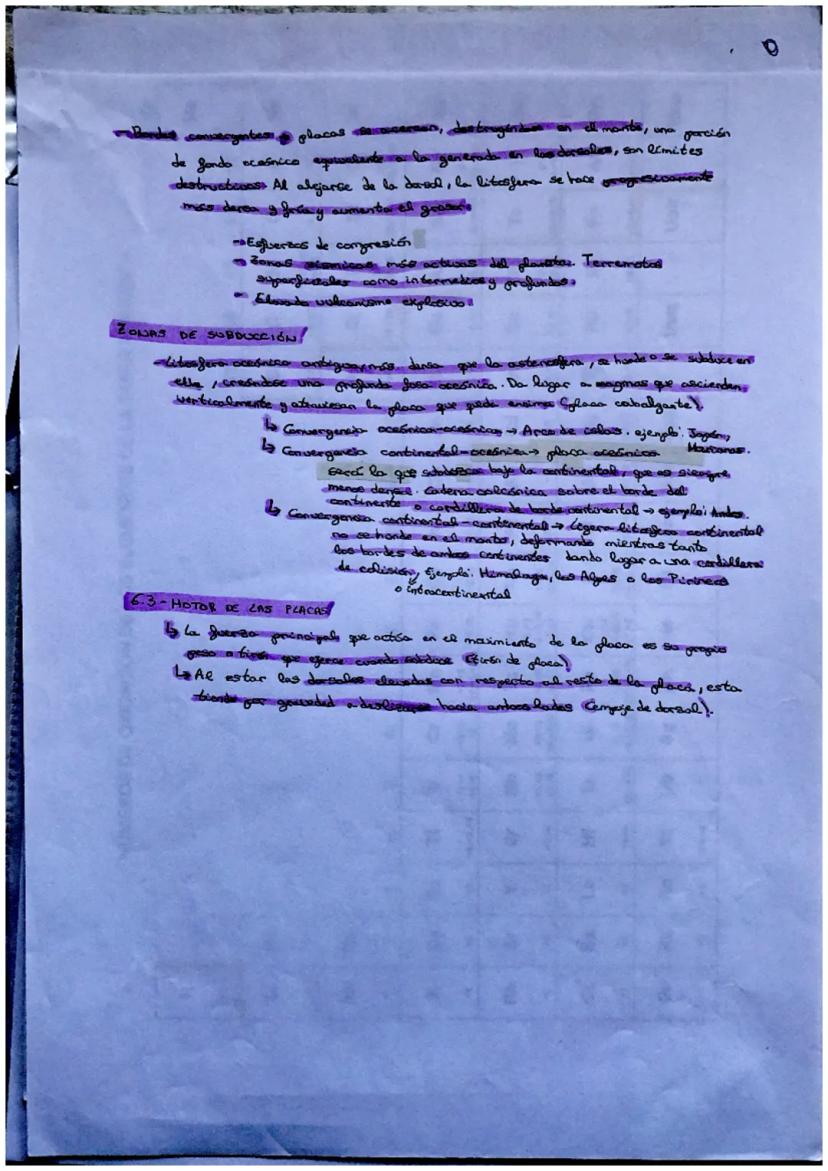 - Bordes convergentes → placas se acercan, destruyéndose en el manto, una porción
de fondo oceánico equivalente a la generada en las dorsales, son límites
destructivos. Al alejarse de la dorsal, la litosfera se hace progresivamente
más densa y fría y aumenta el grosor.
→ Esfuerzos de compresión
→ Zonas sísmicas más activas del planeta. Terremotos
superficiales como intermedios y profundos.
- Elevado vulcanismo explosivo.
ZONAS DE SUBDUCCIÓN
- Litosfera oceánica antigua, más densa que la astenosfera, se hunde o se subduce en
ella, creándose una profunda fosa oceánica. Da lugar a magmas que ascienden
verticalmente y atraviesan la placa que queda encima (placa cabalgante).
↳ Convergencia oceánica-oceánica → Arco de islas. ejemplo: Japón,
Marianas.
↳ Convergencia continental-oceánica → placa oceánica
será la que subduzca bajo la continental, que es siempre
menos densa. Cadena volcánica sobre el borde del
continente o cordillera de borde continental → ejemplo: Andes.
↳ Convergencia continental-continental → ligera litosfera continental
no se hunde en el manto, deformando mientras tanto
los bordes de ambos continentes dando lugar a una cordillera
de colisión, Ejemplo: Himalaya, los Alpes o los Pirineos
o intracontinental
6.3- MOTOR DE LAS PLACAS
↳ La fuerza principal que actúa en el movimiento de la placa es su propio
peso o tirón que ejerce cuando subduce (tirón de placa)
↳ Al estar las dorsales elevadas con respecto al resto de la placa, esta
tiende por gravedad a deslizarse hacia ambos lados (empuje de dorsal).